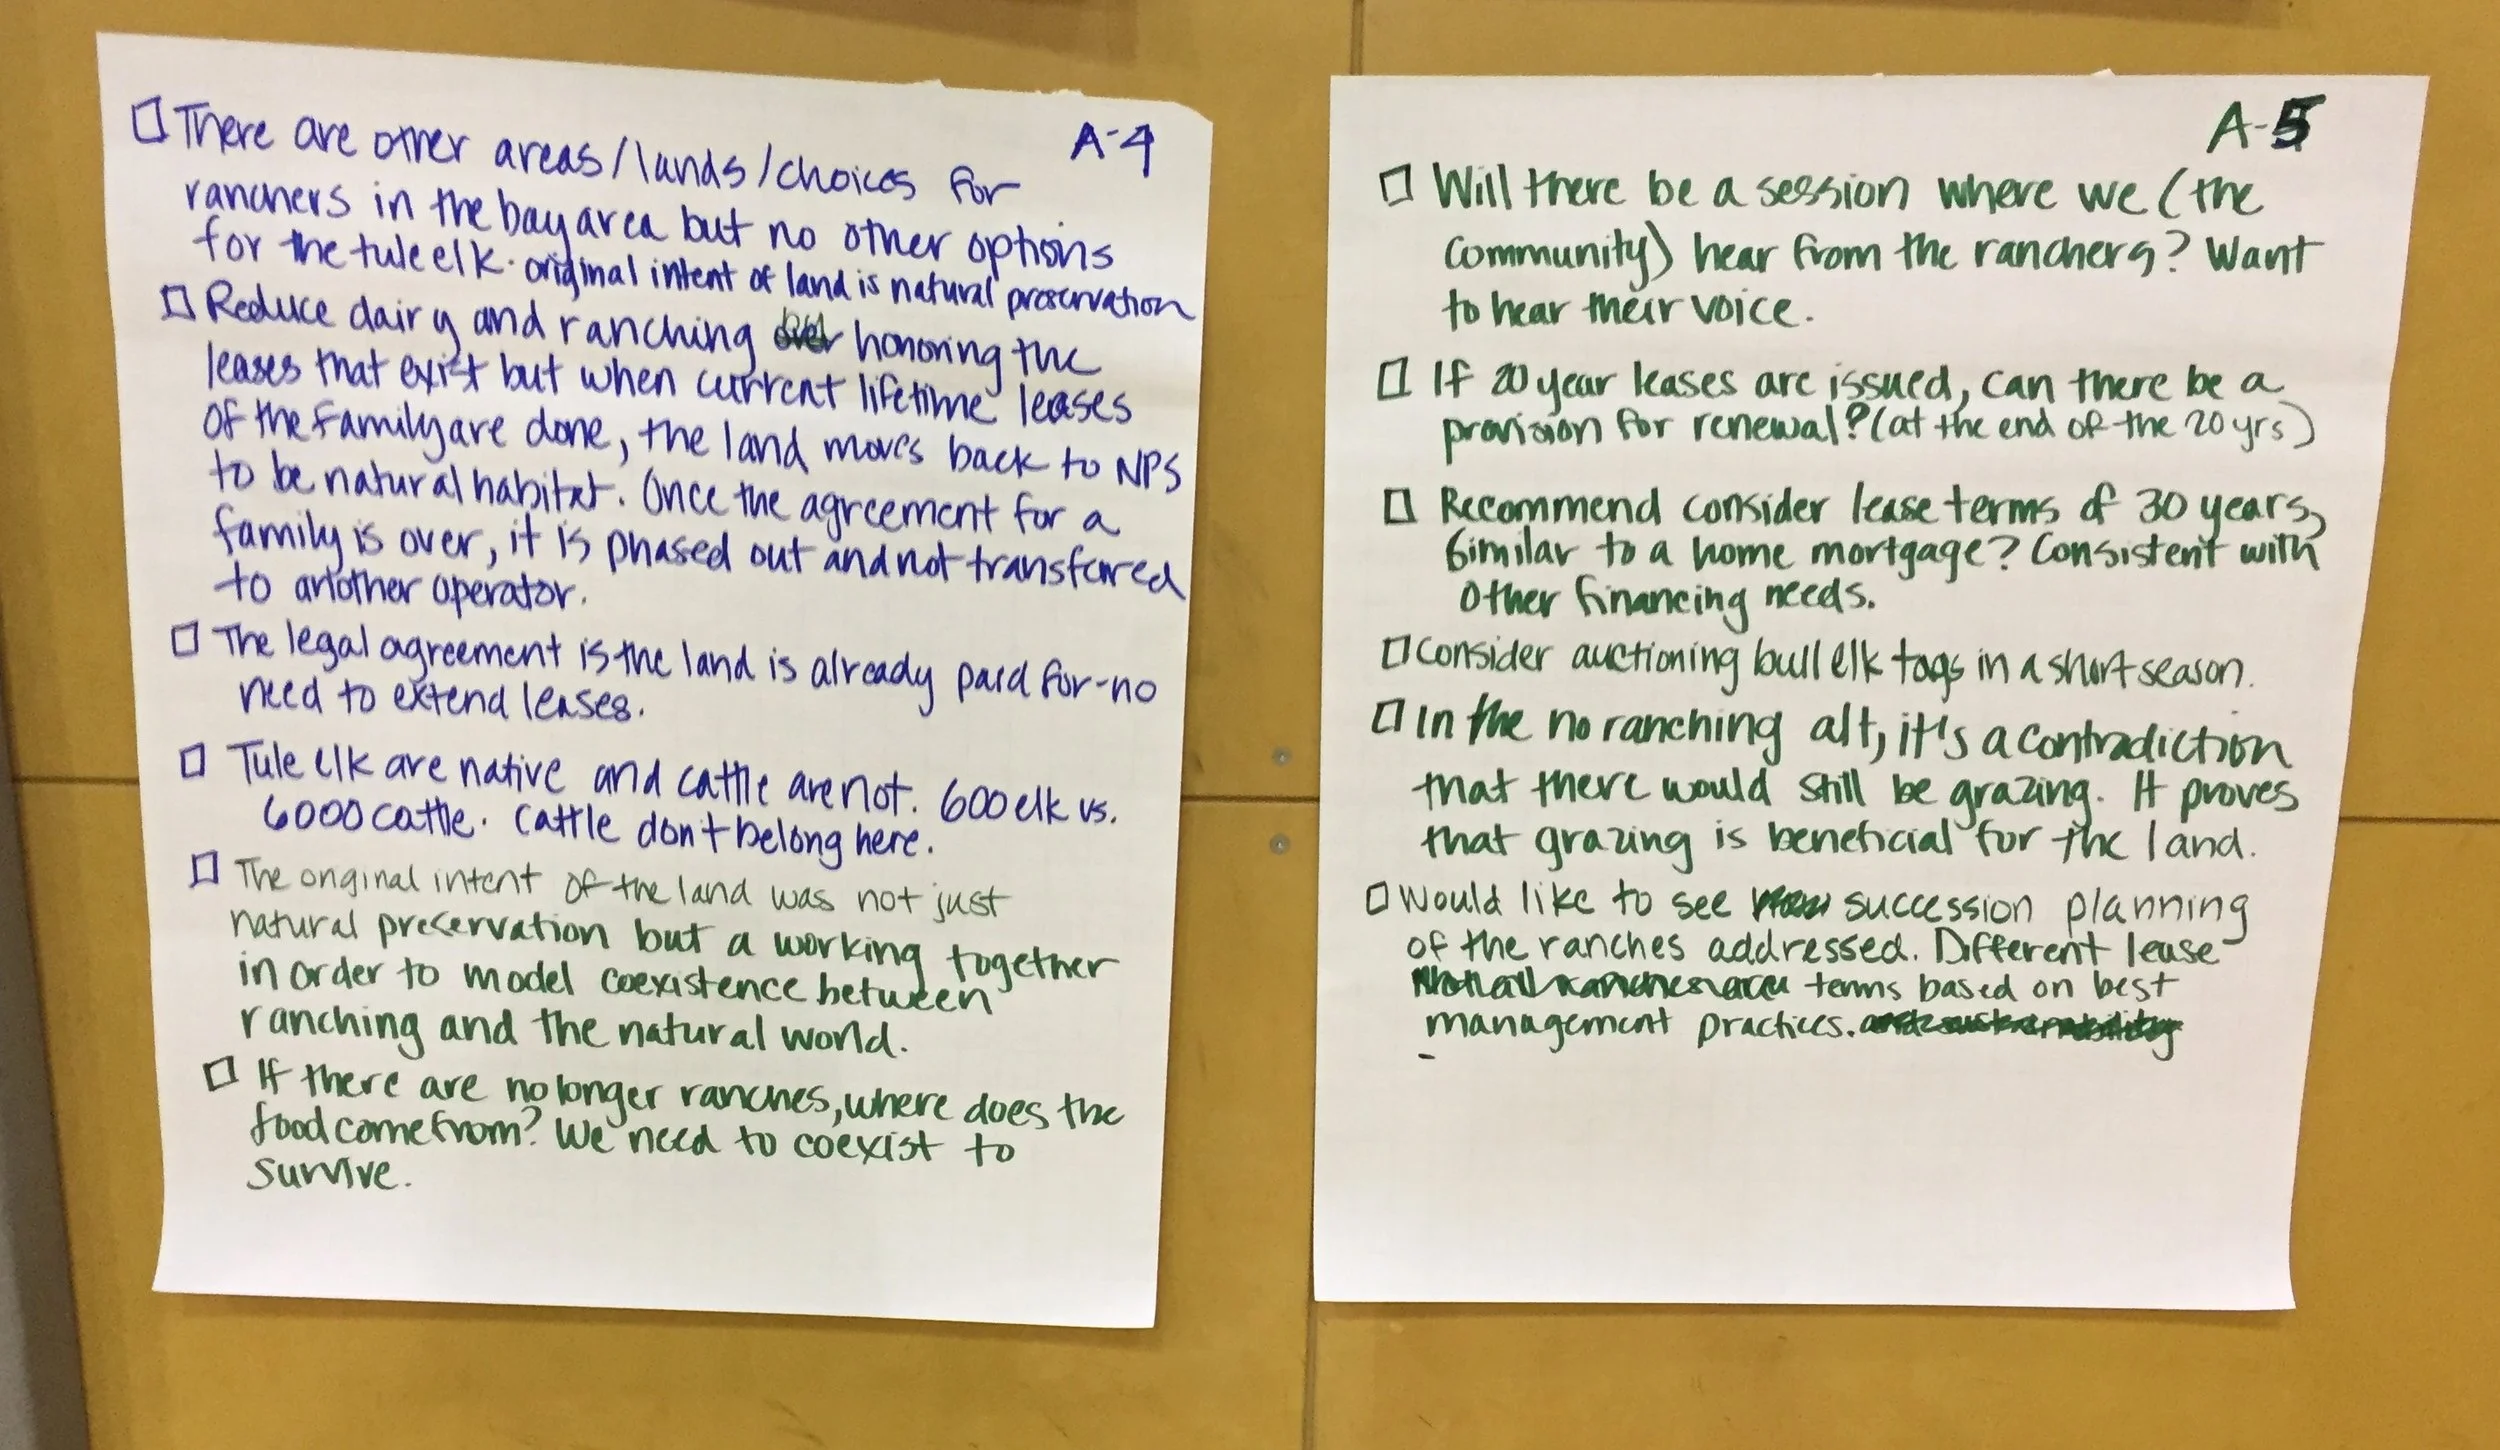 A-4
There are other areas/lands/choices for
ranchers in the bay area but no other options
for the tule elk. original intent of land is natural preservation
Reduce dairy and ranching honoring the
leases that exist but when current lifetime leases
of the family are done, the land moves back to NPS
to be natural habitat. Once the agreement for a
family is over, it is phased out and not transferred
to another operator.
The legal agreement is the land is already paid for-no
need to extend leases.
Tule elk are native and cattle are not. 600 elk vs.
6000 cattle. Cattle don't belong here.
The original intent of the land was not just
natural preservation but a working together
in order to model coexistence between
ranching and the natural world.
If there are no longer ranches, where does the
food come from? We need to coexist to
survive.
A-5
Will there be a session where we (the
community) hear from the ranchers? Want
to hear their voice.
If 20 year leases are issued, can there be a
provision for renewal? (at the end of the 20 yrs)
Recommend consider lease terms of 30 years,
similar to a home mortgage? Consistent with
other financing needs.
Consider auctioning bull elk tags in a short season.
In the no ranching alt, it's a contradiction
that there would still be grazing. It proves
that grazing is beneficial for the land.
Would like to see succession planning
of the ranches addressed. Different lease
terms based on best
management practices.